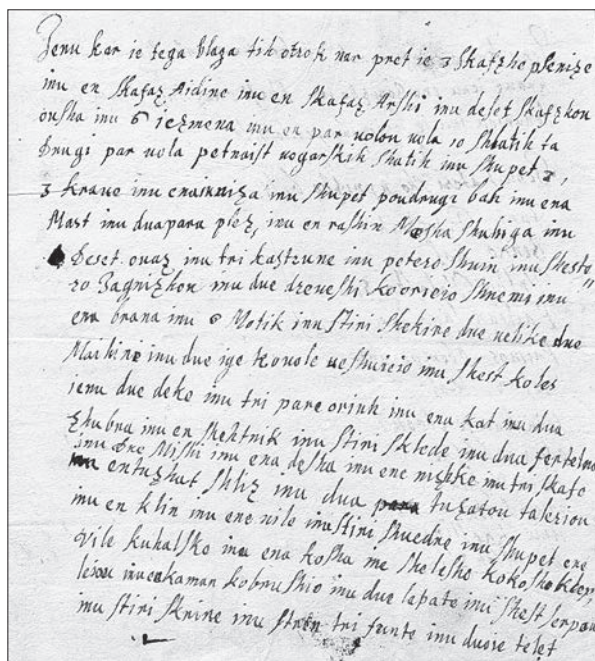 Jenu kar ie tega blaga tih otrok nar pret ie 3 skafzho pſenize
inu en skafaz Aidine inu en skafaz Arshi inu deſet skafzkou
ousha inu 6 iezmena inu en par uolou uola 10 shlatih ta
Drugi par uola petnaist uogarskih shatih inu shupet 2,
3 kraue inu ena iuniza inu shupet poudrugi bah inu ena
Mast inu dua para plez, inu en rashin Mosha shubiga inu
Deset ouaz inu tri kastrune inu petero shuin inu shesto
ro Jagnizhou inu due dreueshi koorieio shnemi inu
ena brana inu 6 Motik inu stiri shekire due uelike due
Maihine inu due ige kouole ueshuieio inu shest koles
ienu due deke inu tri pare orinh inu ena kat inu dua
zhubra inu en shehtnik inu stiri sklede inu dua fertelna
inu Dre Mishi inu ena desha inu ene nizhke inu tri skafe
en tuzhat shliz inu dua tuzatou taleriou
inu en klin inu ene uile inu stiri shuedre inu shupet ene
Vile kuhalske inu ena kosha ine shelesho kokosho
inu en kaman kobrushio inu due lapate inu shest serpou
inu stiri skrine inu tri funte inu duoie telet